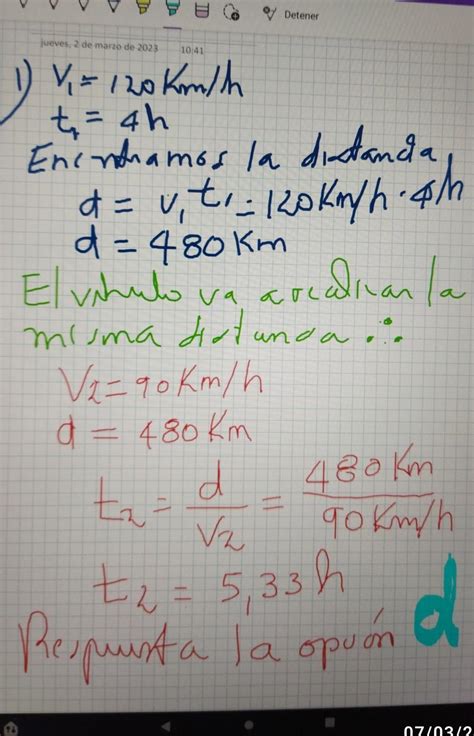 Detener
jueves, 2 de marzo de 2023 10:41
1) V₁ = 120 Km/h
t₁ = 4h
Encontramos la distancia
d = v₁ t₁ = 120 Km/h · 4h
d = 480 Km
El vehículo va a realizar la
misma distancia ∴
V₂ = 90 Km/h
d = 480 Km
t₂ = d/V₂ = 480 Km/90 Km/h
t₂ = 5,33 h
Respuesta la opción d
07/03/2